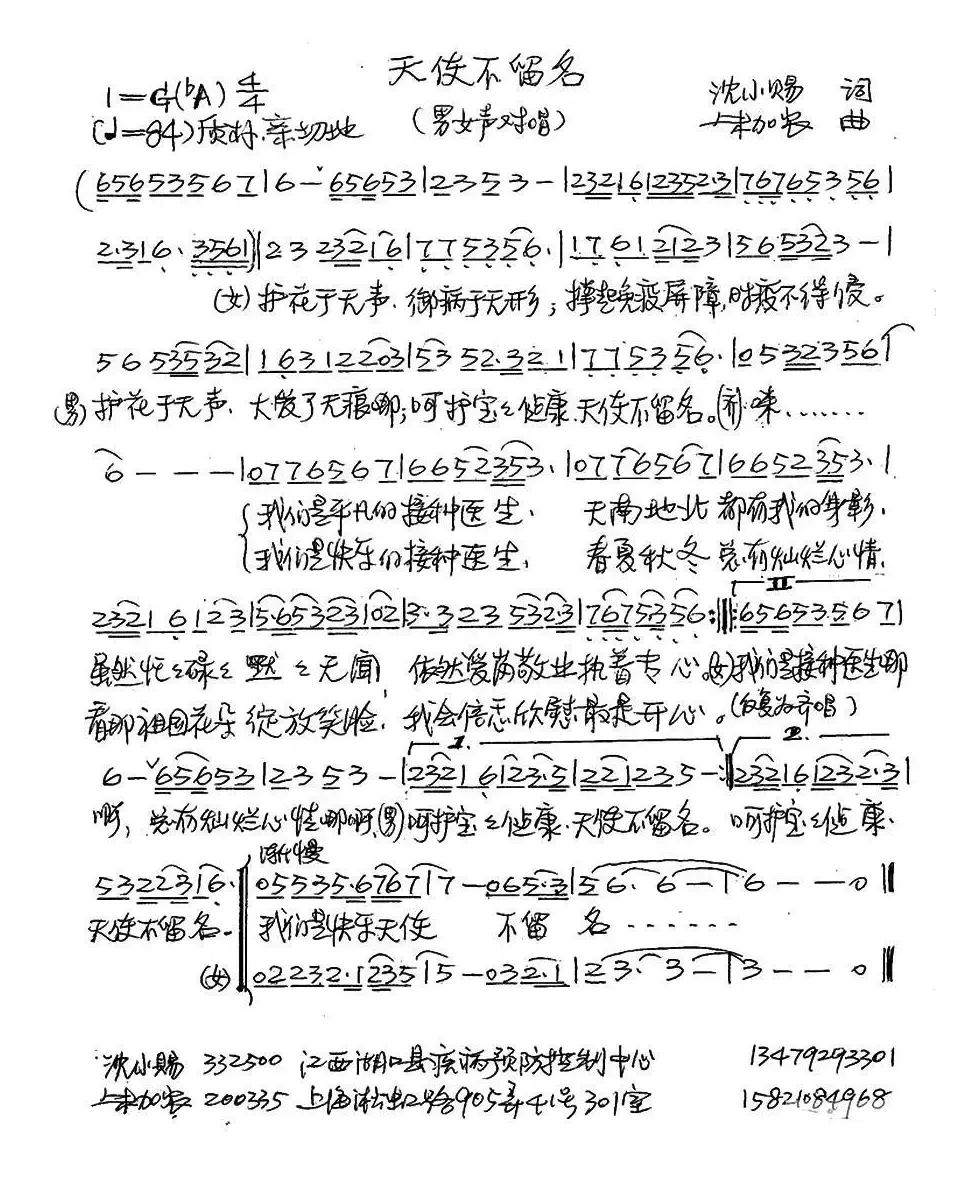 天使不留名
1=G(ᵇA) 4/4 沈小赐 词
(♩=84) 质朴.亲切地 (男女声对唱) 加农 曲
(6 5 6 5 3 5 6 7 | 6 - ˇ6 5 6 5 3 | 2 3 5 3 - | 2 3 2 1 6 1 2 3 5 2·3 | 7 6 7 6 5 3 5 6 |
2·3 1 6· 3 5 6 1) | 2 3 2 3 2 1 6 | 7 7 5 3 5 6· | 1 7 6 1 2 1 2 3 | 5 6 5 3 2 3 - |
(女) 护花于无声、御病于无形；撑起免疫屏障,时疫不得侵。
5 6 5 3 5 3 2 | 1 6 3 1 2 2 0 3 | 5 3 5 2·3 2 1 | 7 7 5 3 5 6· | 0 5 3 2 3 5 6 |
(男) 护花于无声、大爱了无痕哪；呵护宝之健康.天使不留名。(齐)来.......
6 - - - | 0 7 7 6 5 6 7 | 6 6 5 2 3 5 3· | 0 7 7 6 5 6 7 | 6 6 5 2 3 5 3· |
我们是平凡的接种医生、 天南地北 都有我的身影、
我们是快乐的接种医生、 春夏秋冬 总有灿烂心情、
II
2 3 2 1 6 1 2 3 | 5·6 5 3 2 3 1 0 2 | 3·3 2 3 5 3 2·3 | 7 6 7 5 3 5 6 :‖: 6 5 6 5 3·5 6 7 |
虽然忙々碌々 默々无闻, 依然爱岗敬业执着专心。(女)我们是接种医生哪
看那祖国花朵 绽放笑脸, 我会倍感欣慰最是开心。(反复为齐唱)
1. 2.
6 - ˇ6 5 6 5 3 | 2 3 5 3 - | 2 3 2 1 6 1 2 3·5 | 2 2 1 2 3 5 - :‖ 2 3 2 1 6 1 2 3 2·3 |
啊, 总有灿烂心情哪啊,(男)呵护宝々健康.天使不留名。 呵护宝々健康、
渐慢
5 3 2 2 3 1 6· 0 5 5 3 5·6 7 6 7 | 7 - 0 6 5·3 | 5 6· 6 - | 6 - - 0 ‖
天使不留名。 我们是快乐天使 不留 名 ......
(女) 0 2 2 3 2·1 2 3 5 | 5 - 0 3 2·1 | 2 3· 3 - | 3 - - 0 ‖
沈小赐 332500 江西湖口县疾病预防控制中心 13479293301
加农 200335 上海淞虹路905弄41号301室 15821084968